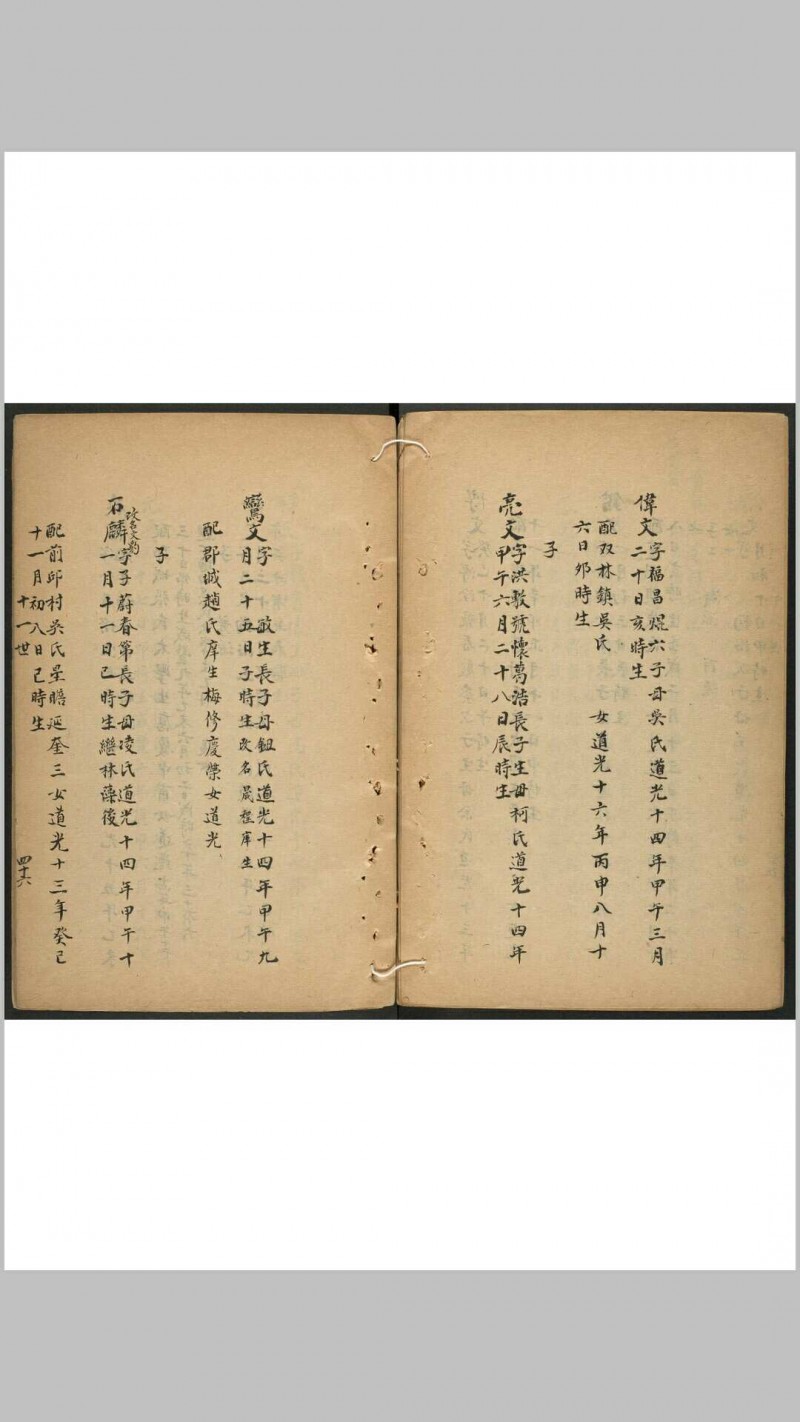 偉文字福昌焜六子母吳氏道光十四年甲午三月
二十日亥時生
配双林鎮吳氏 女道光十六年丙申八月十
六日卯時生
亮文字洪敎號懷葛浩長子生母柯氏道光十四年
甲午六月二十八日辰時生
子
鸞文字 敏生長子母鈕氏道光十四年甲午九
月二十五日子時生改名 程庠生
配郡城趙氏庠生梅修慶榮女道光
子
石麟字子蔚春第長子母凌氏道光十四年甲午十
改名文豹
一月十一日巳時生繼林藻後
配前邱村吳氏星瞻延奎三女道光十三年癸巳
十一月初八日巳時生
十一世
四十六